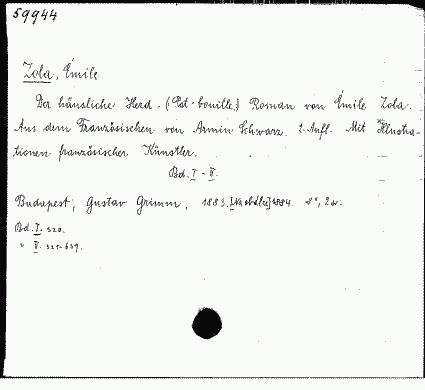 59944
Zola, Émile
Der häusliche Herd. (Pot-bouille.) Roman von Émile Zola.
Aus dem Französischen von Armin Schwarz. 2. Aufl. Mit Illustra-
tionen französischer Künstler.
Bd. I - II.
Budapest, Gustav Grimm, 1883. 1884. 8°, 2
Bd. I. 320.
" II. 321-639.